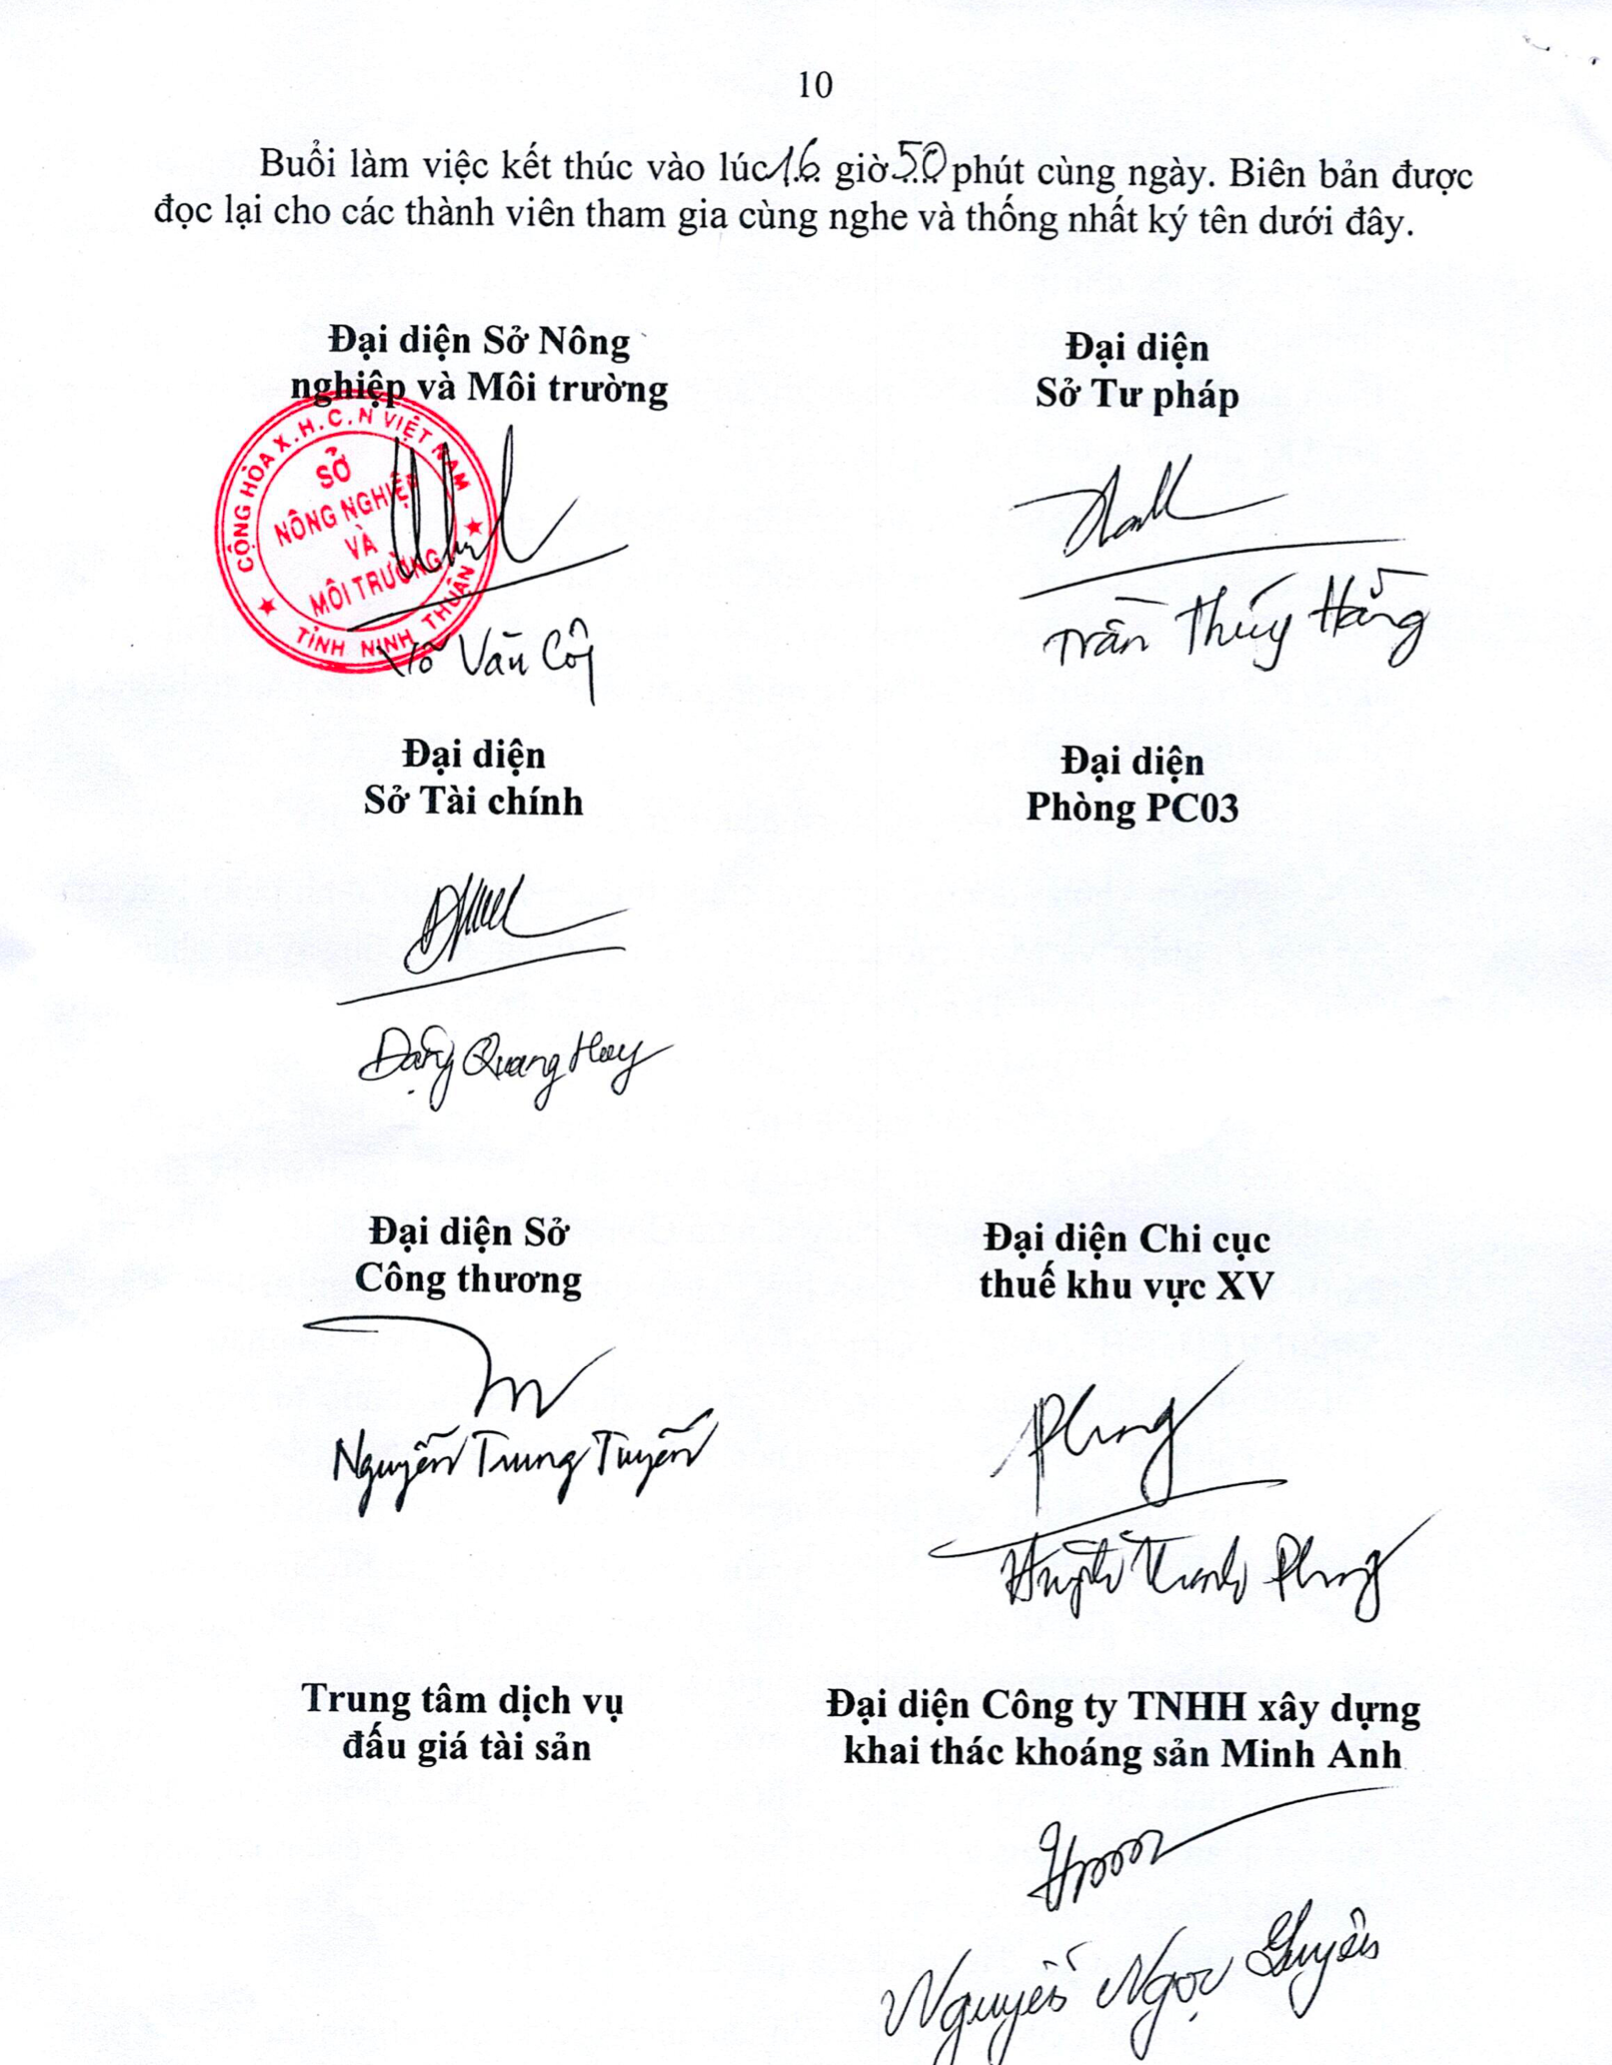 10
Buổi làm việc kết thúc vào lúc 16 giờ 50 phút cùng ngày. Biên bản được
đọc lại cho các thành viên tham gia cùng nghe và thống nhất ký tên dưới đây.
Đại diện Sở Nông
nghiệp và Môi trường
CỘNG HÒA X.H.C.N VIỆT NAM
SỞ
NÔNG NGHIỆP
VÀ
MÔI TRƯỜNG
TỈNH NINH THUẬN
Võ Văn
Đại diện
Sở Tư pháp
Trần Thúy Hằng
Đại diện
Sở Tài chính
Đặng Quang Huy
Đại diện
Phòng PC03
Đại diện Sở
Công thương
Nguyễn Trung Tuyến
Đại diện Chi cục
thuế khu vực XV
Phong
Huỳnh Thanh Phong
Trung tâm dịch vụ
đấu giá tài sản
Đại diện Công ty TNHH xây dựng
khai thác khoáng sản Minh Anh
Nguyễn Ngọc